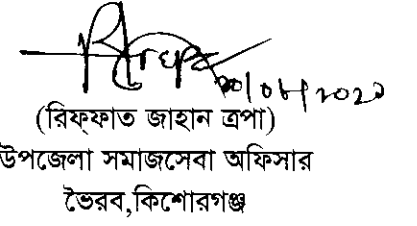 (রিফ্ফাত জাহান ত্রপা)
উপজেলা সমাজসেবা অফিসার
ভৈরব,কিশোরগঞ্জ